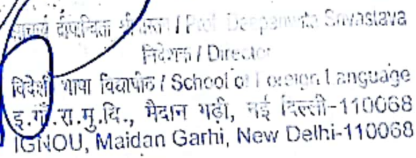 आचार्य दीपान्विता श्रीवास्तव / Prof. Deepanwita Srivastava
निदेशक / Director
विदेशी भाषा विद्यापीठ / School of Foreign Language
इ.गाँ.रा.मु.वि., मैदान गढ़ी, नई दिल्ली-110068
IGNOU, Maidan Garhi, New Delhi-110068